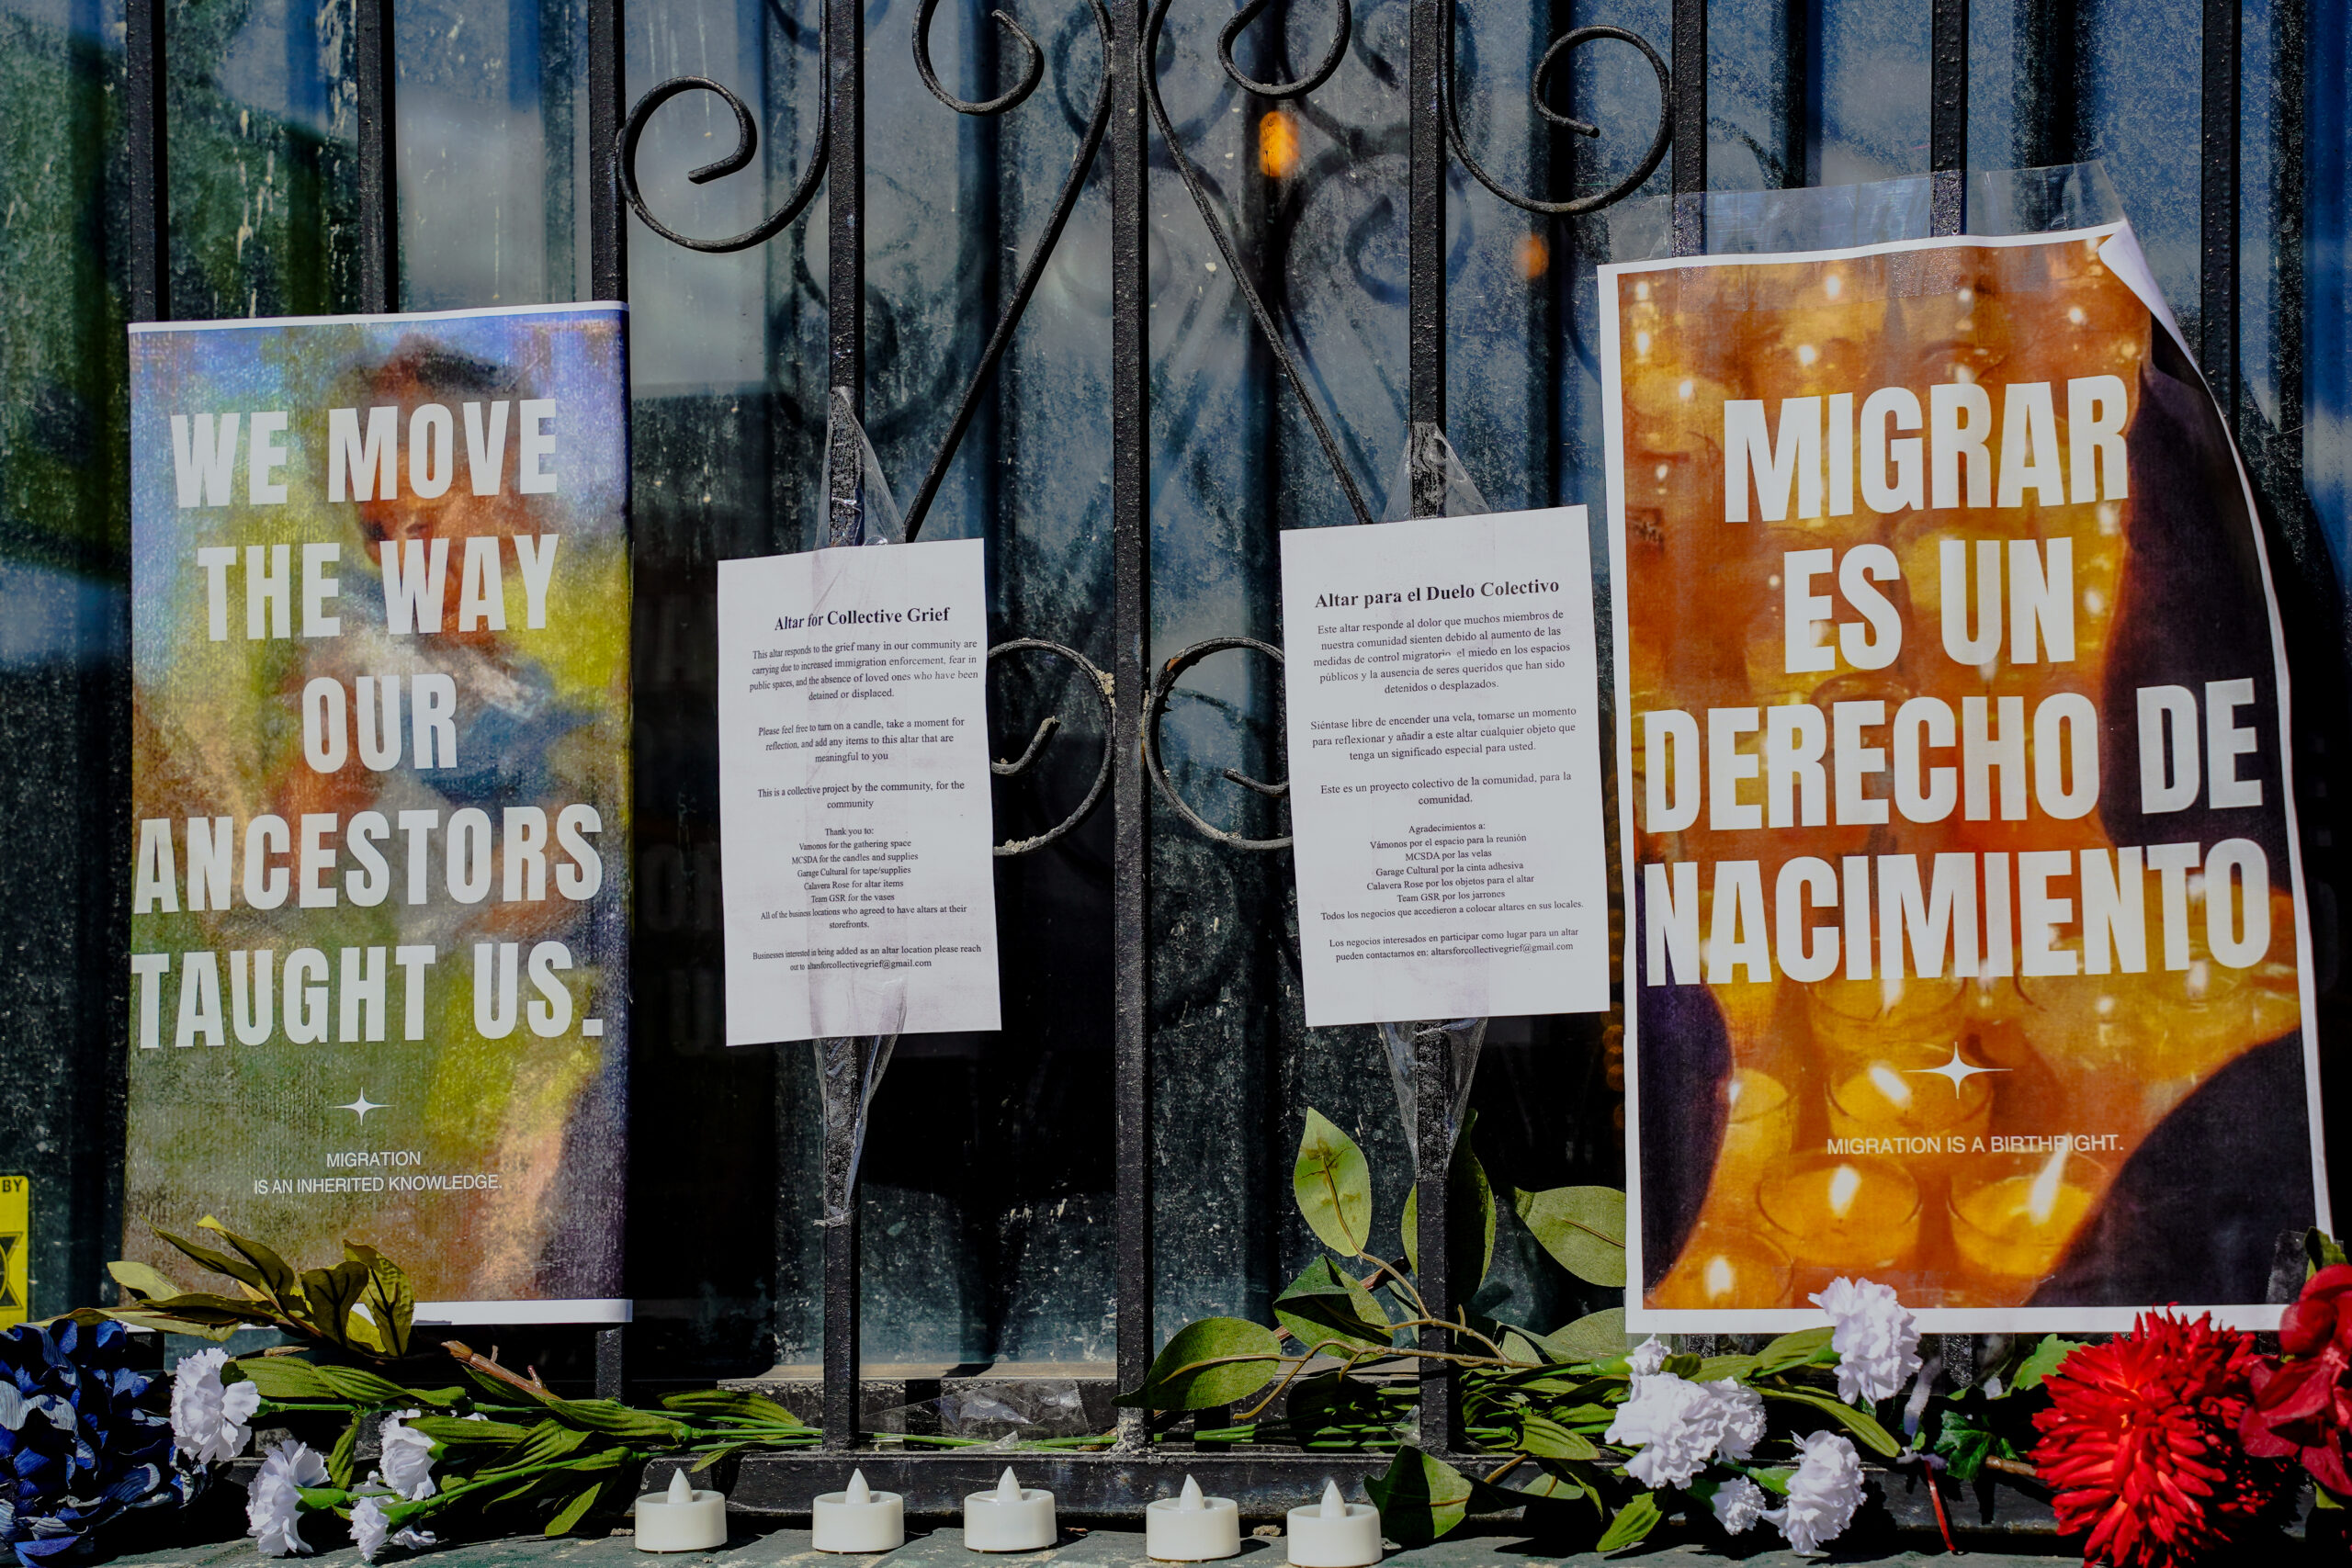 WE MOVE
THE WAY
OUR
ANCESTORS
TAUGHT US.
MIGRATION
IS AN INHERITED KNOWLEDGE.
BY
Altar for Collective Grief
This altar responds to the grief many in our community are
carrying due to increased immigration enforcement, fear in
public spaces, and the absence of loved ones who have been
detained or displaced.
Please feel free to turn on a candle, take a moment for
reflection, and add any items to this altar that are
meaningful to you
This is a collective project by the community, for the
community
Thank you to:
Vamonos for the gathering space
MCSDA for the candles and supplies
Garage Cultural for tape/supplies
Calavera Rose for altar items
Team GSR for the vases
All of the business locations who agreed to have altars at their
storefronts.
Businesses interested in being added as an altar location please reach
out to altarsforcollectivegrief@gmail.com
Altar para el Duelo Colectivo
Este altar responde al dolor que muchos miembros de
nuestra comunidad sienten debido al aumento de las
medidas de control migratorio, el miedo en los espacios
públicos y la ausencia de seres queridos que han sido
detenidos o desplazados.
Siéntase libre de encender una vela, tomarse un momento
para reflexionar y añadir a este altar cualquier objeto que
tenga un significado especial para usted.
Este es un proyecto colectivo de la comunidad, para la
comunidad.
Agradecimientos a:
Vámonos por el espacio para la reunión
MCSDA por las velas
Garage Cultural por la cinta adhesiva
Calavera Rose por los objetos para el altar
Team GSR por los jarrones
Todos los negocios que accedieron a colocar altares en sus locales.
Los negocios interesados en participar como lugar para un altar
pueden contactarnos en: altarsforcollectivegrief@gmail.com
MIGRAR
ES UN
DERECHO DE
NACIMIENTO
MIGRATION IS A BIRTHRIGHT.